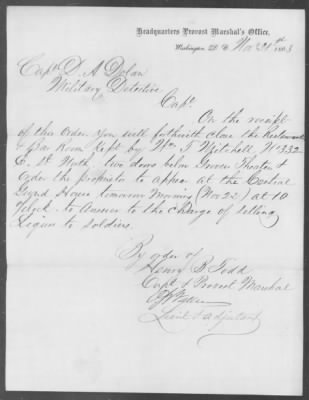 Headquarters Provost Marshal's Office,
Washington, D. C. Nov 21st 1863
Capt D. A Dolan
Military Detective
Capt
On the receipt
of this Order you will forthwith close the Restaurant
& Bar Room Kept by Wm T Mitchell, No 332
E. St North two doors below Grovers Theater &
Order the proprietor to appear at the Central
Guard House tomorrow Morning (Nov 22) at 10
Oclock to Answer to the Charge of Selling
Liquor to Soldiers.
By order of
Henry B. Todd
Capt & Provost Marshal
Lieut & Adjutant